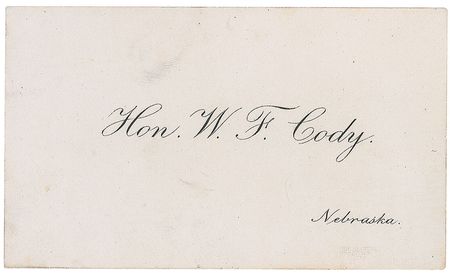 Hon. W. F. Cody.
Nebraska.